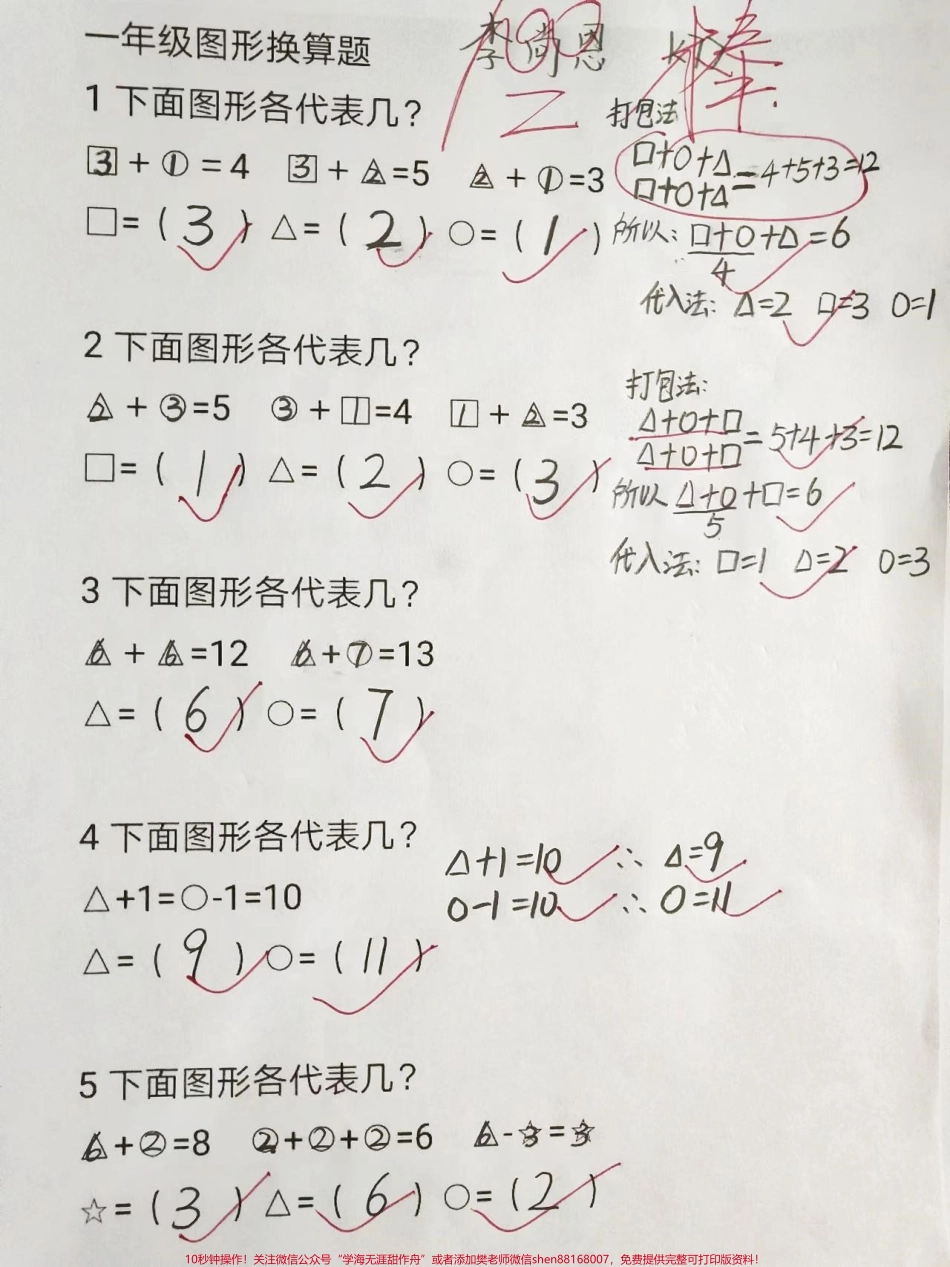 一年级图形换算题 李尚恩 100 棒
1 下面图形各代表几？
□3 + ○1 = 4 □3 + △2 =5 △2 + ○1 =3
□= ( 3 ) △= ( 2 ) ○= ( 1 )
打包法
□+○+△
□+○+△ = 4+5+3=12
所以: □+○+△=6
4
代入法: △=2 □=3 ○=1
2 下面图形各代表几？
△2 + ○3 =5 ○3 + □1 =4 □1 + △2 =3
□= ( 1 ) △= ( 2 ) ○= ( 3 )
打包法:
△+○+□
△+○+□ = 5+4+3=12
所以 △+○+□=6
5
代入法: □=1 △=2 ○=3
3 下面图形各代表几？
△6 + △6 =12 △6 + ○7 =13
△= ( 6 ) ○= ( 7 )
4 下面图形各代表几？
△+1=○-1=10
△= ( 9 ) ○= ( 11 )
△+1=10 ∴ △=9
○-1=10 ∴ ○=11
5 下面图形各代表几？
△6 + ○2 =8 ○2 + ○2 + ○2 =6 △6 - ☆3 = ☆3
☆= ( 3 ) △= ( 6 ) ○= ( 2 )
10秒钟操作！关注微信公众号“学海无涯甜作舟”或者添加樊老师微信shen88168007，免费提供完整可打印版资料！